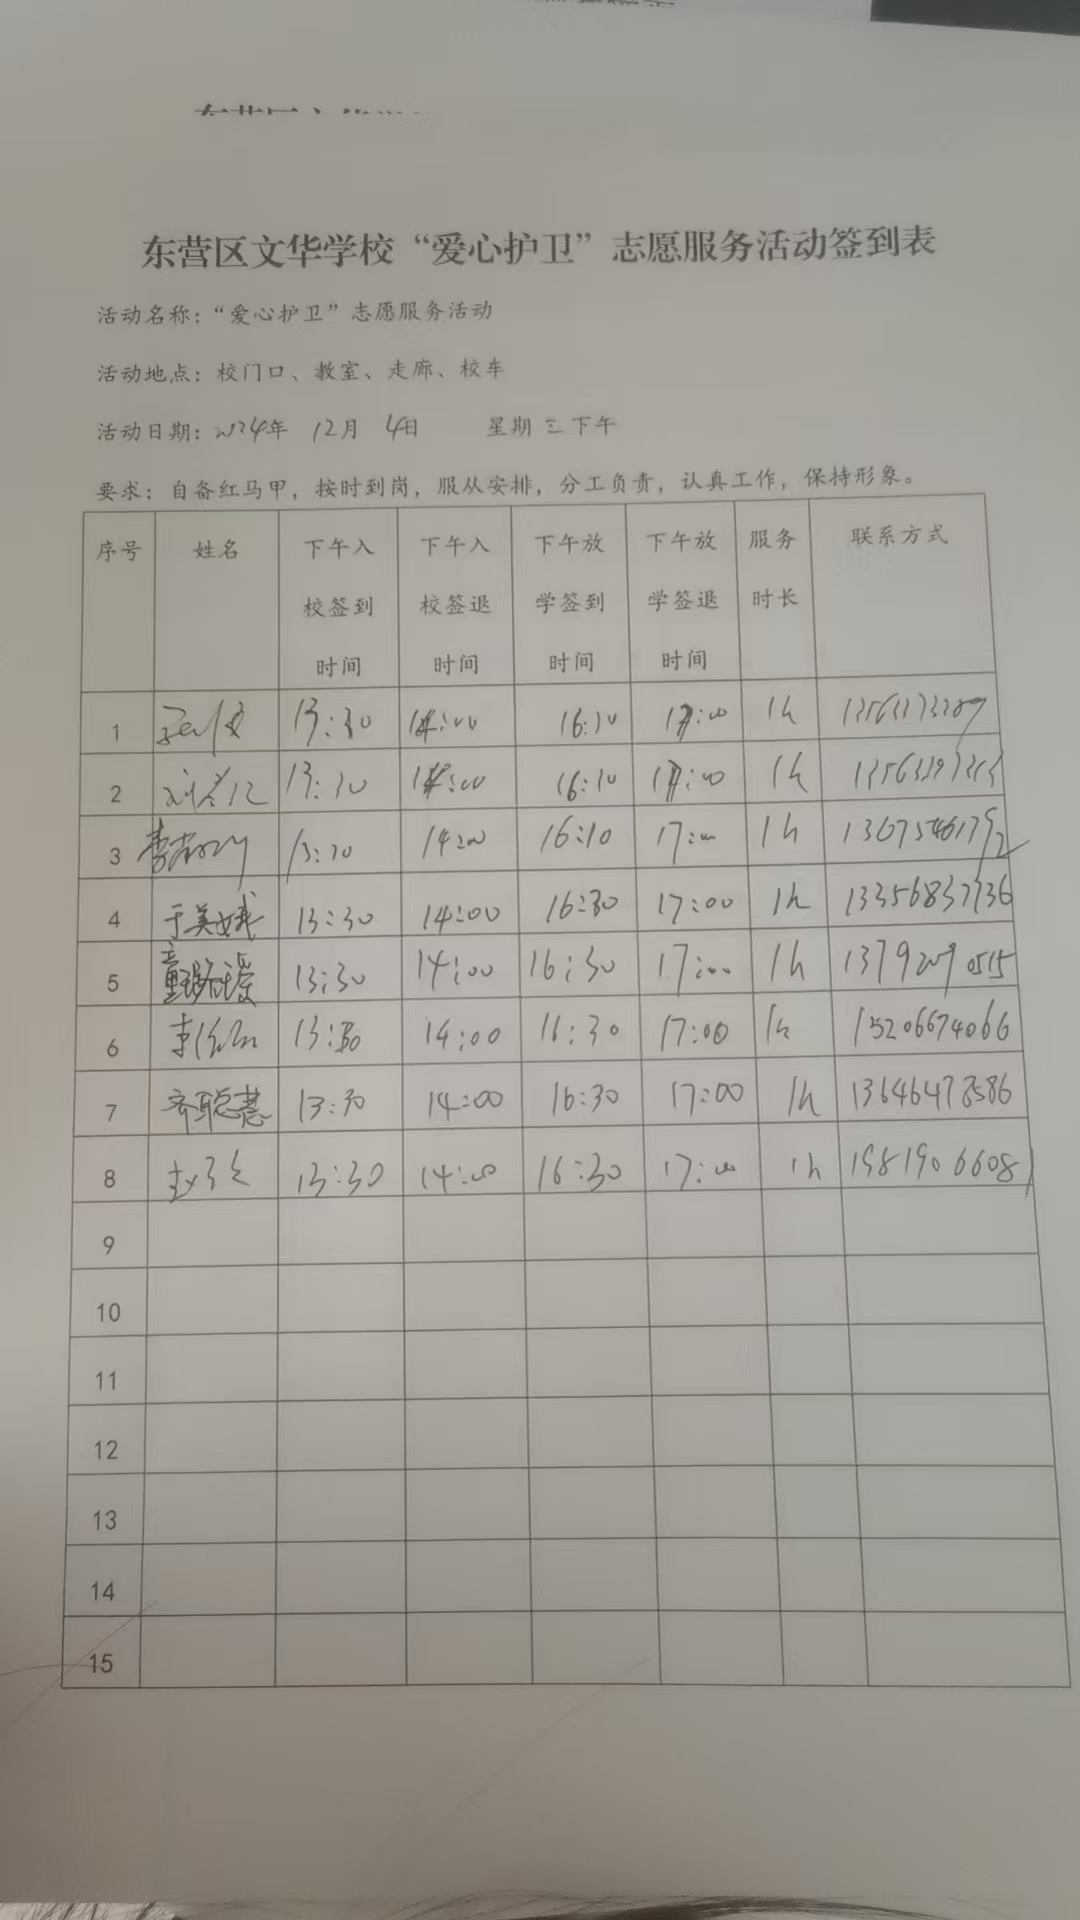 东营区文华学校“爱心护卫”志愿服务活动签到表
活动名称：“爱心护卫”志愿服务活动
活动地点：校门口、教室、走廊、校车
活动日期：2024年 12月 4日 星期三下午
要求：自备红马甲，按时到岗，服从安排，分工负责，认真工作，保持形象。
序号 姓名 下午入校签到时间 下午入校签退时间 下午放学签到时间 下午放学签退时间 服务时长 联系方式
1 13:30 14:00 16:30 17:00 1h
2 13:30 14:00 16:30 17:00 1h
3 13:30 14:00 16:10 17:00 1h
4 于美娥 13:30 14:00 16:30 17:00 1h
5 13:30 14:00 16:30 17:00 1h 13792090515
6 13:30 14:00 16:30 17:00 1h 15206674066
7 齐聪慧 13:30 14:00 16:30 17:00 1h 13646478586
8 13:30 14:00 16:30 17:00 1h 19819066081
9
10
11
12
13
14
15